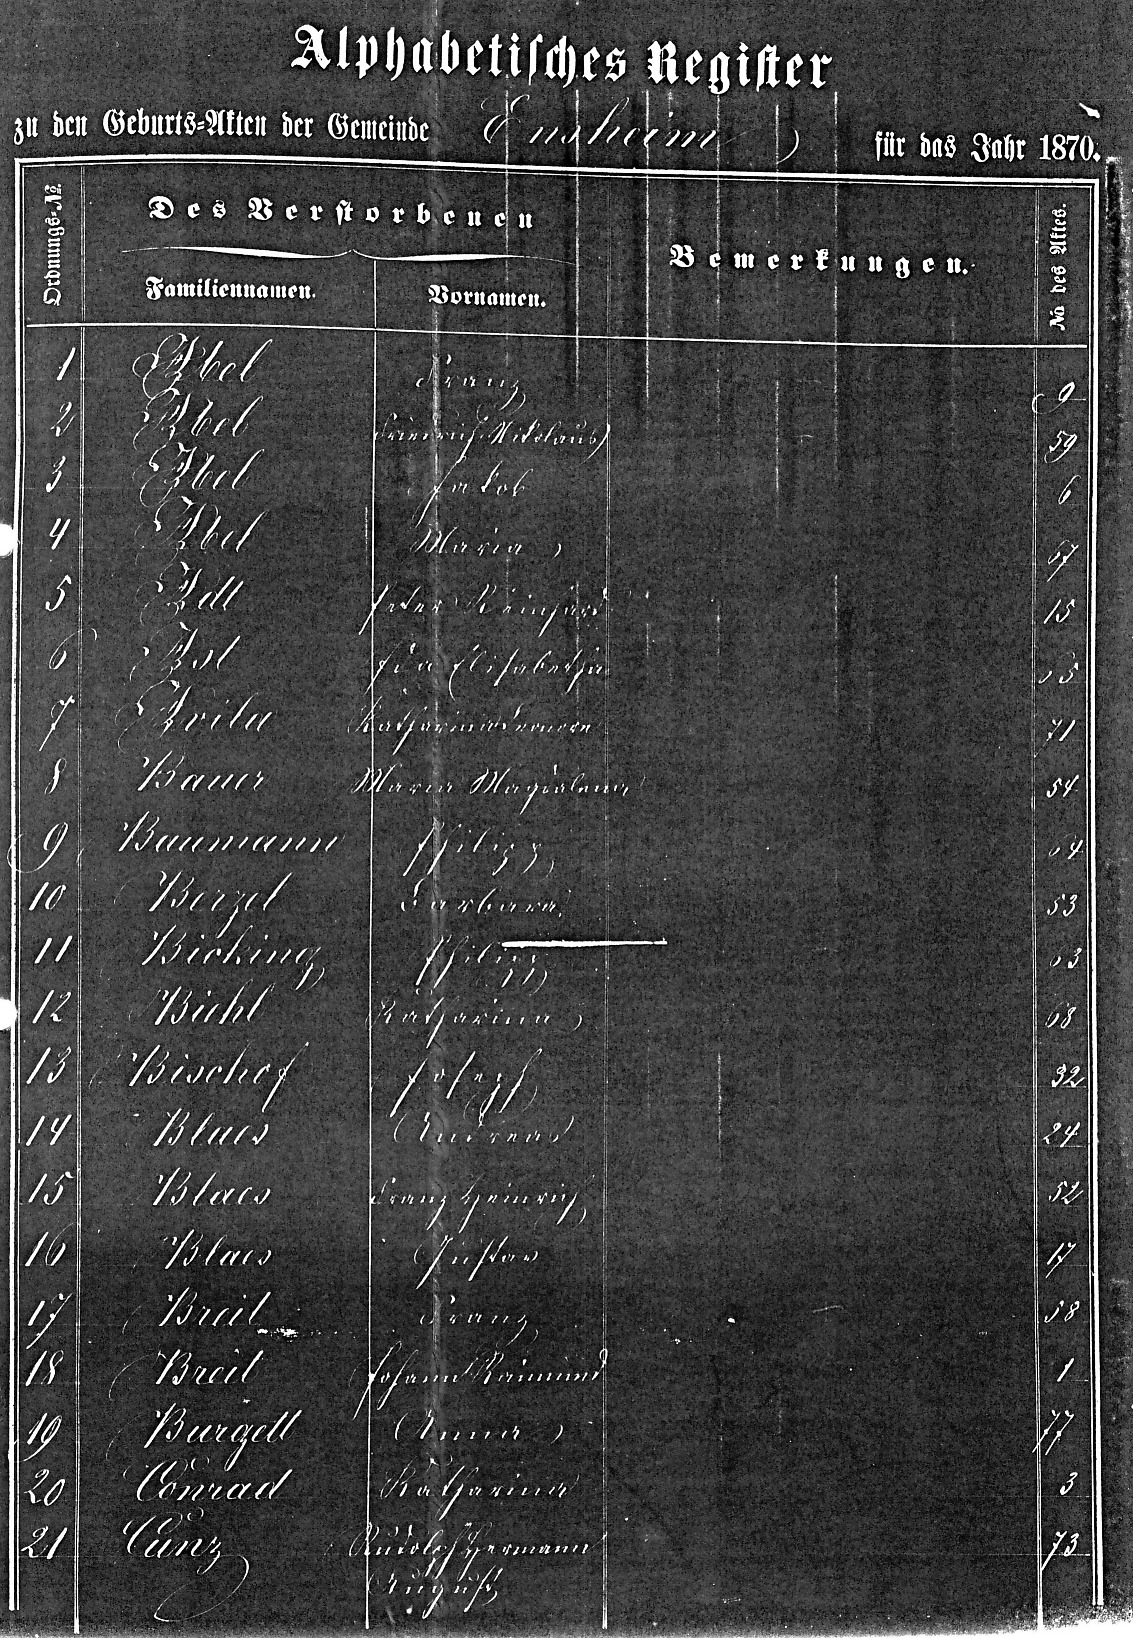 Alphabetisches Register
zu den Geburts-Akten der Gemeinde Ensheim für das Jahr 1870.
Ordnungs-No. Des Verstorbenen Bemerkungen. No des Aktes.
Familiennamen. Vornamen.
1 Abel Franz 9
2 Abel Friedrich Nikolaus 59
3 Abel Jakob 6
4 Abel Maria 67
5 Adt Peter Reinhard 15
6 Ast Elisabetha
7 Avila Katharina 71
8 Bauer Maria Magdalena 54
9 Baumann Philipp 64
10 Berzel Barbara 53
11 Bicking Philipp 63
12 Biehl Katharina 68
13 Bischof Joseph 32
14 Blaes Andreas 24
15 Blaes Franz Heinrich 52
16 Blaes Gustav 17
17 Breit Franz 58
18 Breit Johann Raimund 1
19 Burgett Anna 77
20 Conrad Katharina 3
21 Cunz Rudolph Hermann 73
August